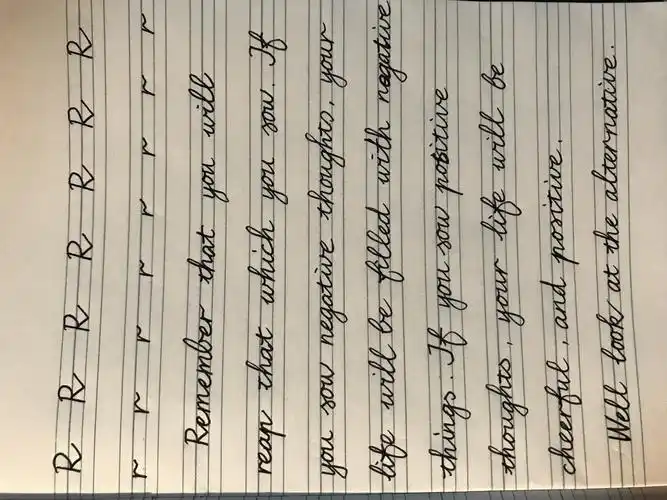 R R R R R R R
r r r r r r r r
Remember that you will
reap that which you sow. If
you sow negative thoughts, your
life will be filled with negative
things. If you sow positive
thoughts, your life will be
cheerful, and positive.
Well look at the alternative.